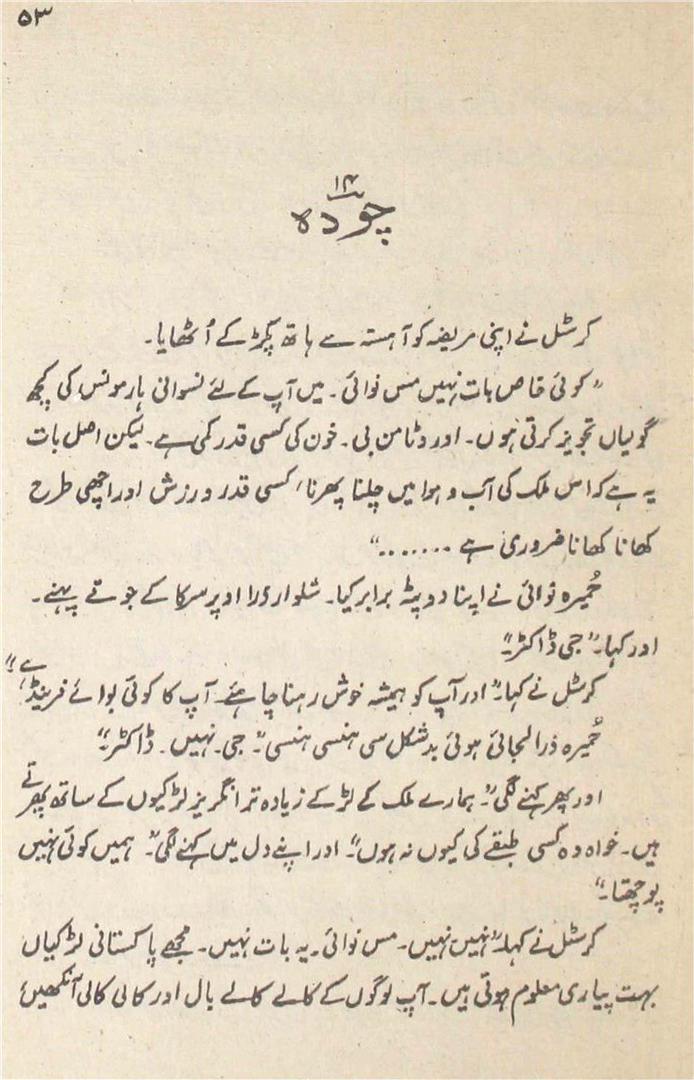 ۵۳
۱۴
چودہ
کرسٹل نے اپنی مریضہ کو آہستہ سے ہاتھ پکڑ کے اُٹھایا۔
"کوئی خاص بات نہیں مس نوائی۔ میں آپ کے لئے نسوانی ہارمونس کی کچھ
گولیاں تجویز کرتی ہوں۔ اور وٹامن بی۔ خون کی کسی قدر کمی ہے۔ لیکن اصل بات
یہ ہے کہ اس ملک کی آب و ہوا میں چلنا پھرنا، کسی قدر ورزش اور اچھی طرح
کھانا کھانا ضروری ہے ......."
حُمیرہ نوائی نے اپنا دوپٹہ برابر کیا۔ شلوار ذرا اوپر سرکا کے جوتے پہنے۔
اور کہا۔ "جی ڈاکٹر۔"
کرسٹل نے کہا۔ "اور آپ کو ہمیشہ خوش رہنا چاہئے۔ آپ کا کوئی بوائے فرینڈ ہے؟"
حُمیرہ ذرا لجائی ہوئی بدشکل سی ہنسی ہنسی۔ "جی۔ نہیں۔ ڈاکٹر۔"
اور پھر کہنے لگی۔ "ہمارے ملک کے لڑکے زیادہ تر انگریز لڑکیوں کے ساتھ پھرتے
ہیں۔ خواہ وہ کسی طبقے کی کیوں نہ ہوں۔" اور اپنے دل میں کہنے لگی۔ "ہمیں کوئی نہیں
پوچھتا۔"
کرسٹل نے کہا۔ "نہیں نہیں۔ مس نوائی۔ یہ بات نہیں۔ مجھے پاکستانی لڑکیاں
بہت پیاری معلوم ہوتی ہیں۔ آپ لوگوں کے کالے کالے بال اور کالی کالی آنکھیں